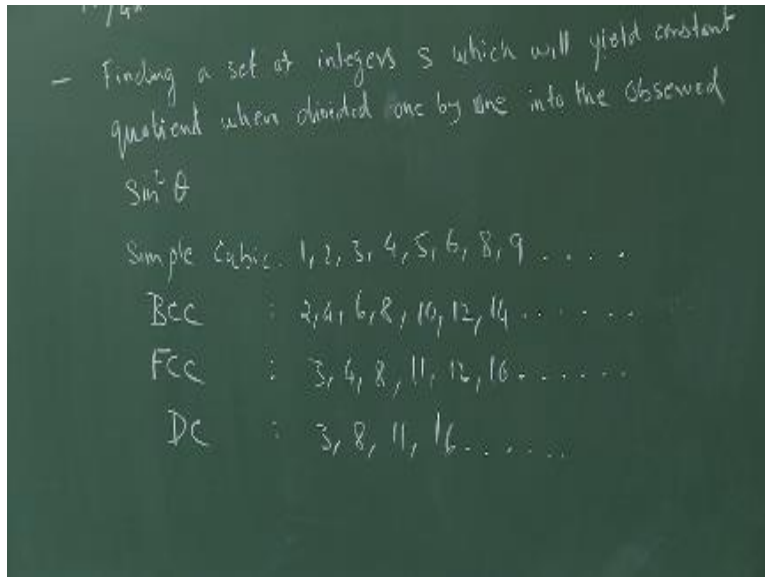 - Finding a set of integers s which will yield constant
quotient when divided one by one into the observed
Sin² θ
Simple Cubic. 1, 2, 3, 4, 5, 6, 8, 9 . . . .
BCC : 2, 4, 6, 8, 10, 12, 14 . . . . . .
FCC : 3, 4, 8, 11, 12, 16 . . . . . .
DC : 3, 8, 11, 16 . . . . . .